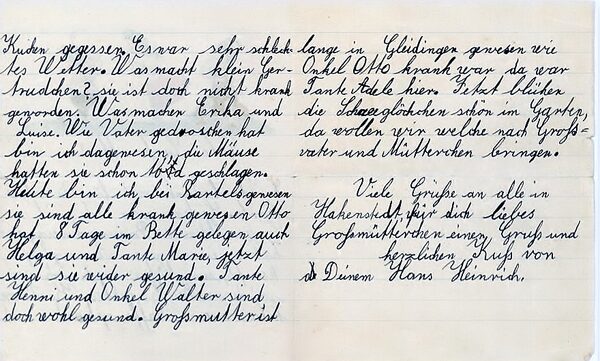 Kuchen gegessen. Es war sehr schlech-
tes Wetter. Was macht klein Ger-
trudchen? sie ist doch nicht krank
geworden. Was machen Erika und
Luise. Wie Vater gedroschen hat
bin ich dagewesen, die Mäuse
hatten sie schon tod geschlagen.
Heute bin ich bei Bartels gewesen
sie sind alle krank gewesen Otto
hat 8 Tage im Bette gelegen auch
Helga und Tante Marie, jetzt
sind sie wider gesund. Tante
Henni und Onkel Walter sind
doch wohl gesund. Großmutter ist
lange in Gleidingen gewesen wie
Onkel Otto krank war da war
Tante Adele hier. Jetzt blühen
die Schneeglöckchen schön im Garten,
da wollen wir welche nach Groß=
vater und Mütterchen bringen.
Viele Grüße an alle in
Hakenstedt, für dich liebes
Großmütterchen einen Gruß und
herzlichen Kuß von
Deinem Hans Heinrich.